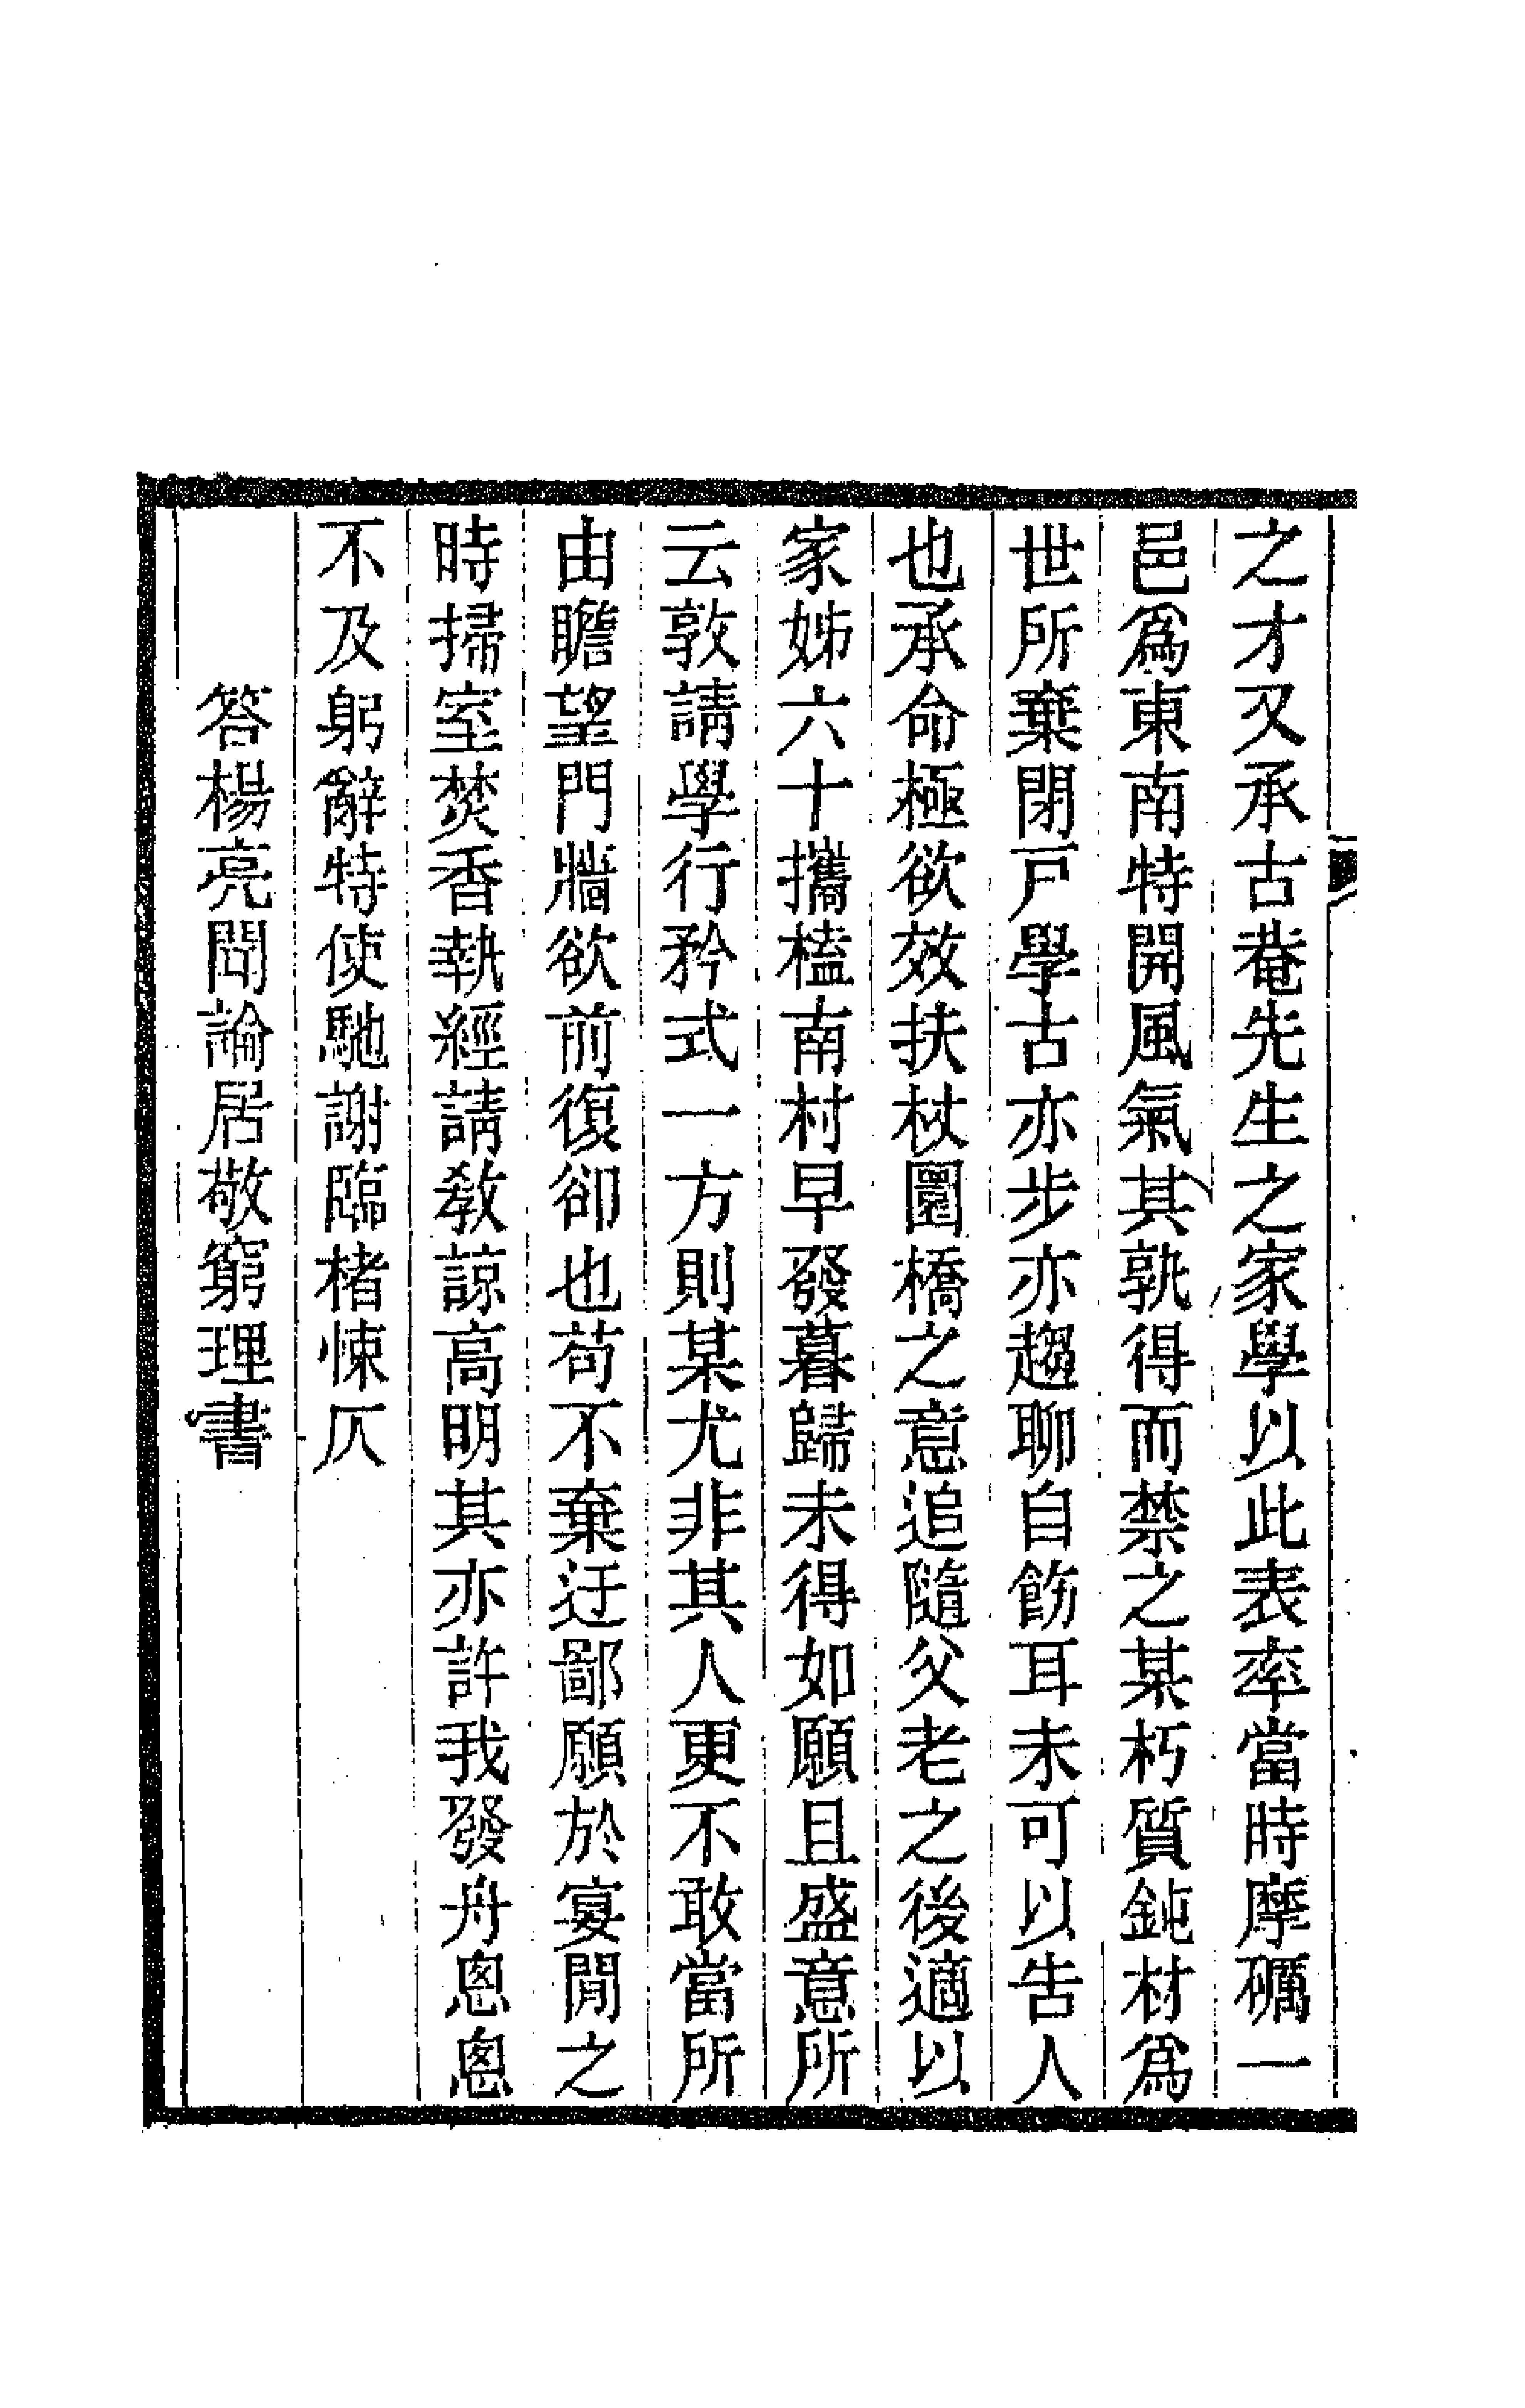 之才又承古菴先生之家學以此表率當時摩礪一
邑爲東南特開風氣其孰得而禁之某朽質鈍材爲
世所棄閉戸學古亦步亦趨聊自飭耳未可以告人
也承命極欲效扶杖圜橋之意追隨父老之後適以
家姊六十攜榼南村早發暮歸未得如願且盛意所
云敦請學行矜式一方則某尤非其人更不敢當所
由瞻望門牆欲前復卻也苟不棄迂鄙願於宴閒之
時掃室焚香執經請敎諒高明其亦許我發舟悤悤
不及躬辭特使馳謝臨楮悚仄
答楊亮聞論居敬窮理書